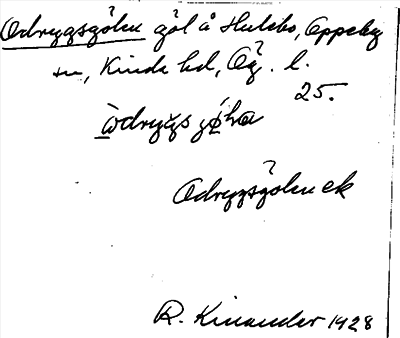 Odrygsgölen göl å Hulebo, Oppeby
sn, Kinda hd, Ög. l.
25.
òdryg̀s gø̀ha
Odrygsgölen ek
R. Kinander 1928